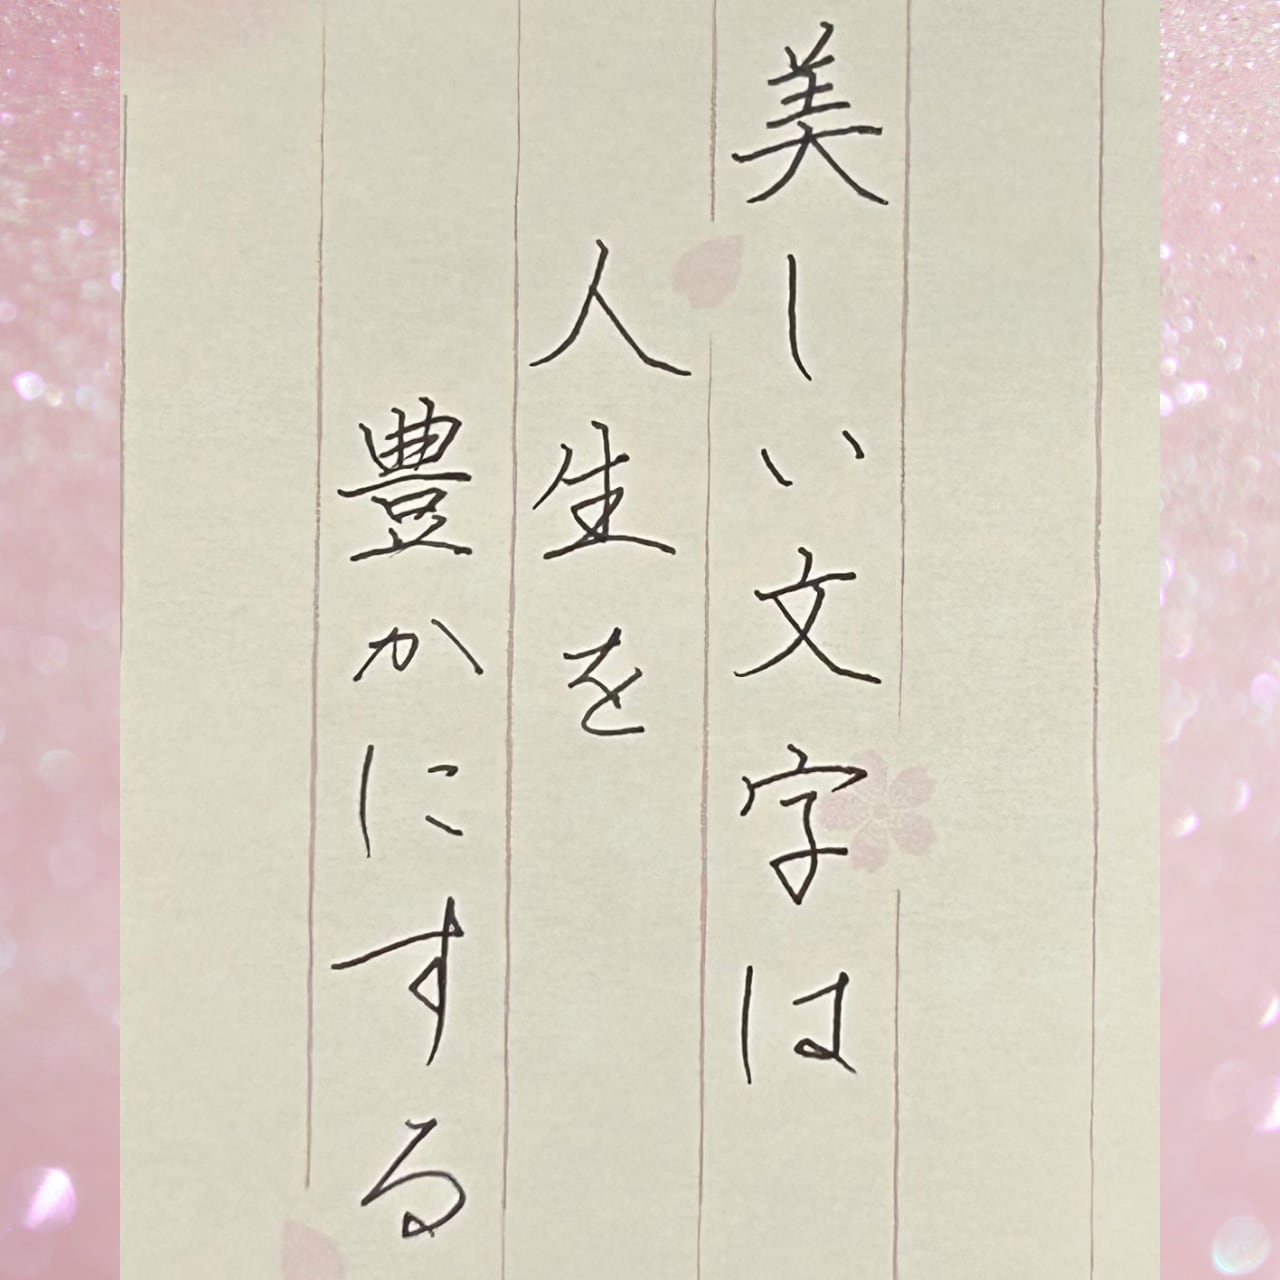 美しい文字は
人生を
豊かにする